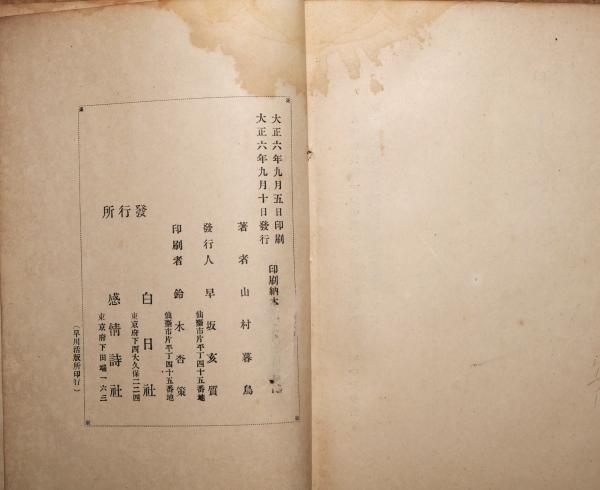 大正六年九月五日印刷
印刷納本
大正六年九月十日發行
著者 山村暮鳥
發行人 早坂亥質
仙臺市片平丁四十五番地
印刷者 鈴木杏策
仙臺市片平丁四十五番地
發行所
白日社
東京府下西大久保二二四
感情詩社
東京府下田端一六三
(早川活版所印行)